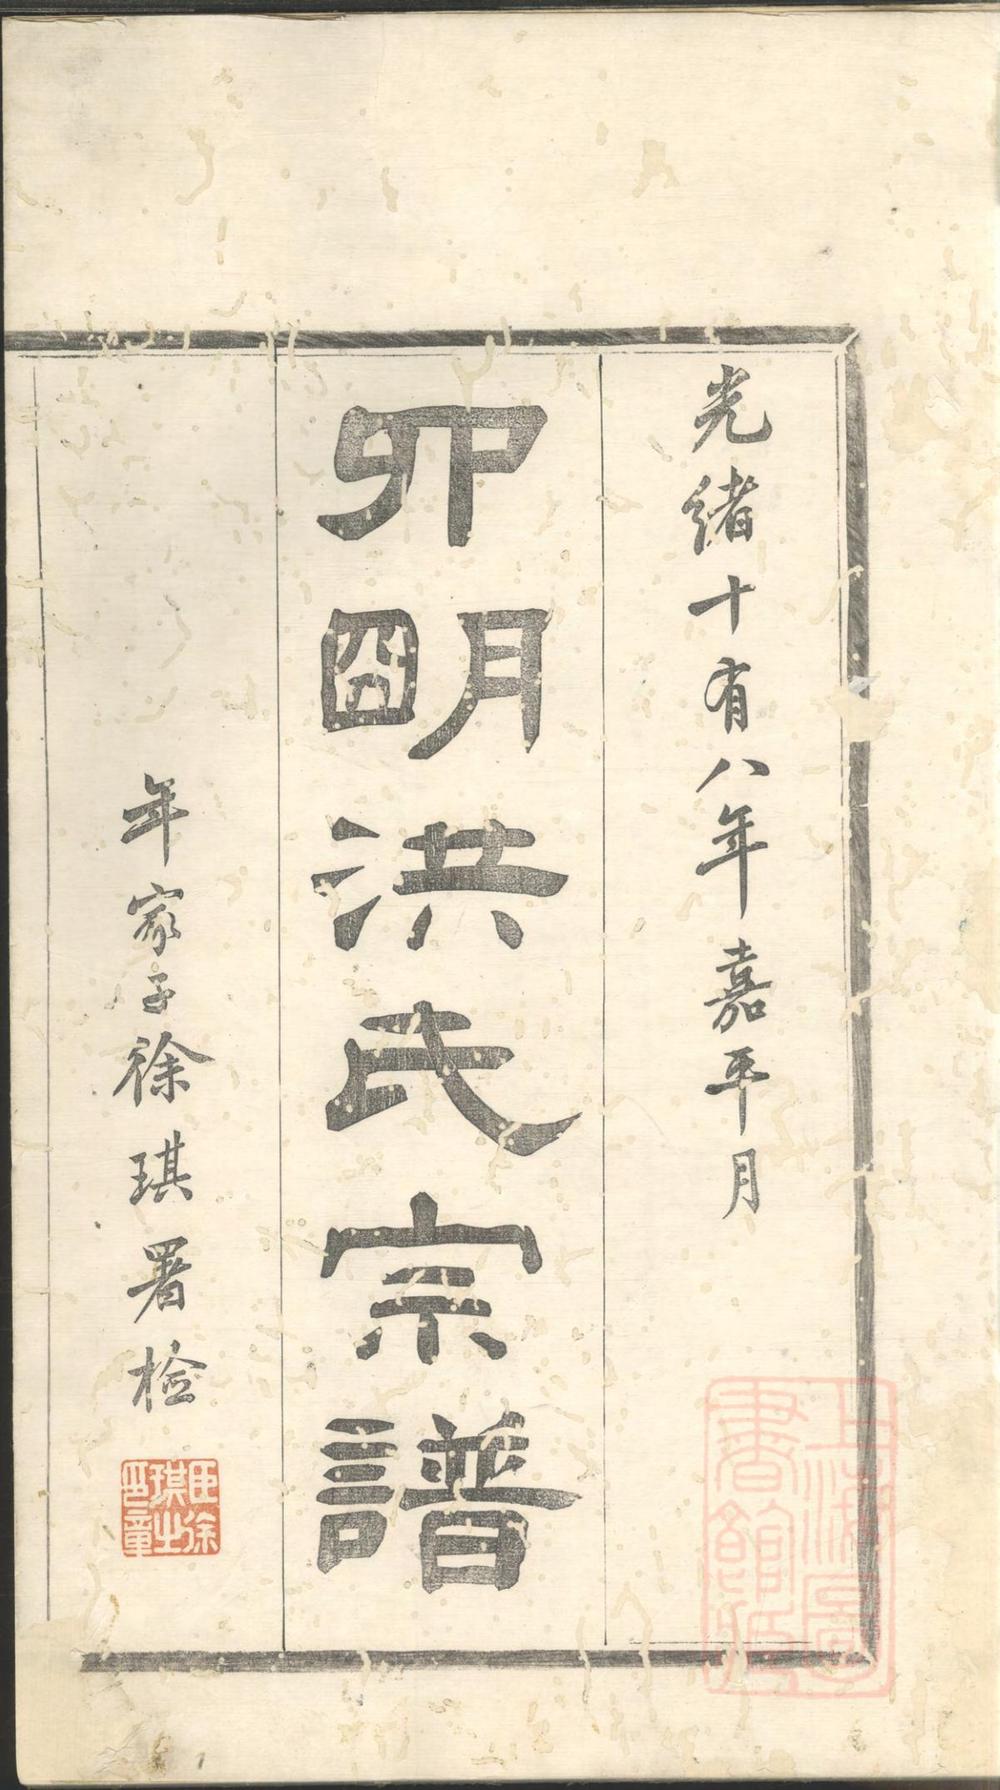 光緒十有八年嘉平月
四朙洪氏宗譜
年家子徐琪署檢
臣徐
琪之
印章
上海圖
書館藏